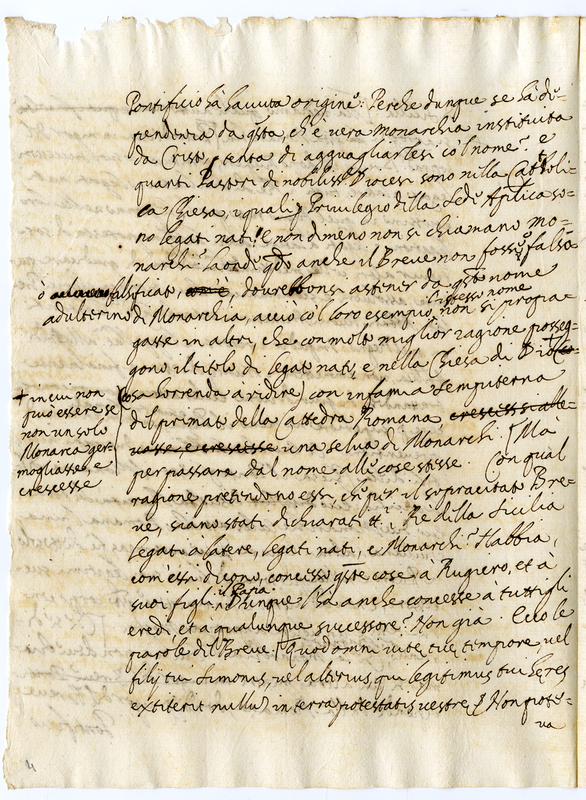 Pontificio hà havuta origine: Perche dunque se hà di-
pendenza da qsta, ch'è vera Monarchia instituita
da Cristo, tenta di agguagliarlesi co'l nome? e
quanti Pastori di nobiliss. Diocesi sono nella Cattoli-
ca Chiesa, i quali p Privilegio della Sede Aplica so-
no legati nati? e non dimeno non si chiamano Mo-
narchi? Laonde qdo anche il Breve non fosse falso
ò falsificato, dovrebbonsi astener da qsto nome
adulterino di Monarchia, acciò co'l loro esempio l'istesso nome non si propa-
gasse in altri, che con molto miglior ragione posseg-
gono il titolo di legati nati, e nella Chiesa di Dio
+ in cui non
può essere se
non un solo
Monarca ger-
mogliasse, e
crescesse
(cosa horrenda à ridire) con infamia sempiterna
del primato della Cattedra Romana, cresciesse
una selva di Monarchi. Ma
per passara dal nome alle cose stesse. Con qual
ragione pretendono essi, che per il sopracitato Bre-
ve, siano stati dichiarati tt.i i Rè della Sicilia
legati à latere, legati nati, e Monarchi? Habbia,
com'essi dicono, concesso qste cose à Rugiero, et à
suoi figli il Papa: Dunque l'hà anche concesse à tutti gli
eredi, et a qualunque successore? Non già. Ecco le
parole del Breve. Quod omni vitę tuę tempore, vel
filij tui Simonis, vel alterius, qui legitimus tui heres
extiterit nullũ in terra potestatis vestrę Non pote-
va
4